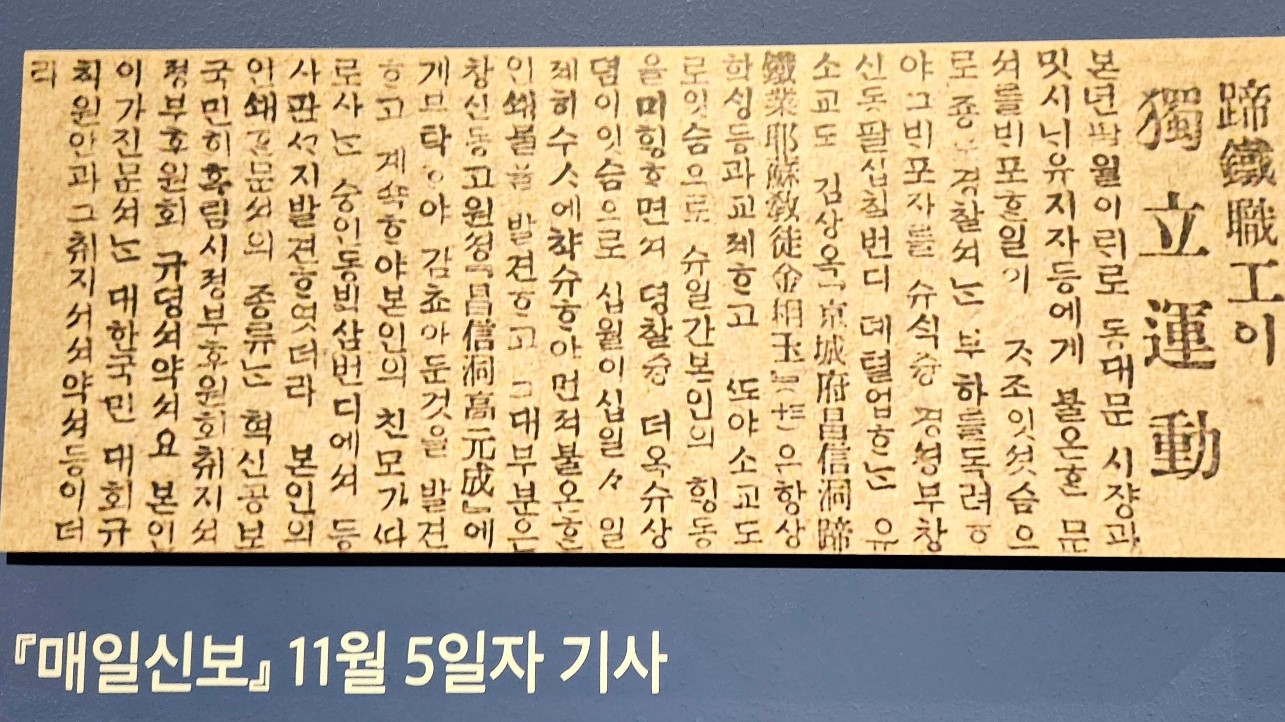 蹄鐵職工이
獨立運動
본년팔월이릭로 동대문 시쟝과
밋시닉유지자등에게 불온흔 문
셔를빅포흔일이 잇섯슴으
로 경찰셔는 부하를독려ᄒ
야그빅포자를 슈식즁 경셩부창
신동팔십칠번디 뎨텰업ᄒ는 유
소교도 김상옥『京城府昌信洞蹄
鐵業耶蘇敎徒金相玉』은항상
학싱등과교제ᄒ고 ᄯ도야소교도
로잇슴으로 슈일간본인의 힝동
을미힝ᄒ면셔 뎡찰즁 더옥슈상
뎜이잇슴으로 십월이십일々 일
제히수식에챡슈ᄒ야먼져불온흔
인쇄물을 발견ᄒ고 그대부분은
창신동고원셩『昌信洞高元成』에
게부탁ᄒ야 감초아둔것을 발견
ᄒ고 계쇽ᄒ야본인의 친모가ᄯ
로사는 숭인동 번디에셔 등
사판ᄭ지발견ᄒ엿더라 본인의
인쇄흔문셔의 종류는 혁신공보
국민히혹림시졍부후원회취지셔
졍부후원회 규뎡셔약셔요 본인
이가진문셔는 대한국민 대회규
칙원안과그취지셔셔약셔등이더
라
『매일신보』 11월 5일자 기사